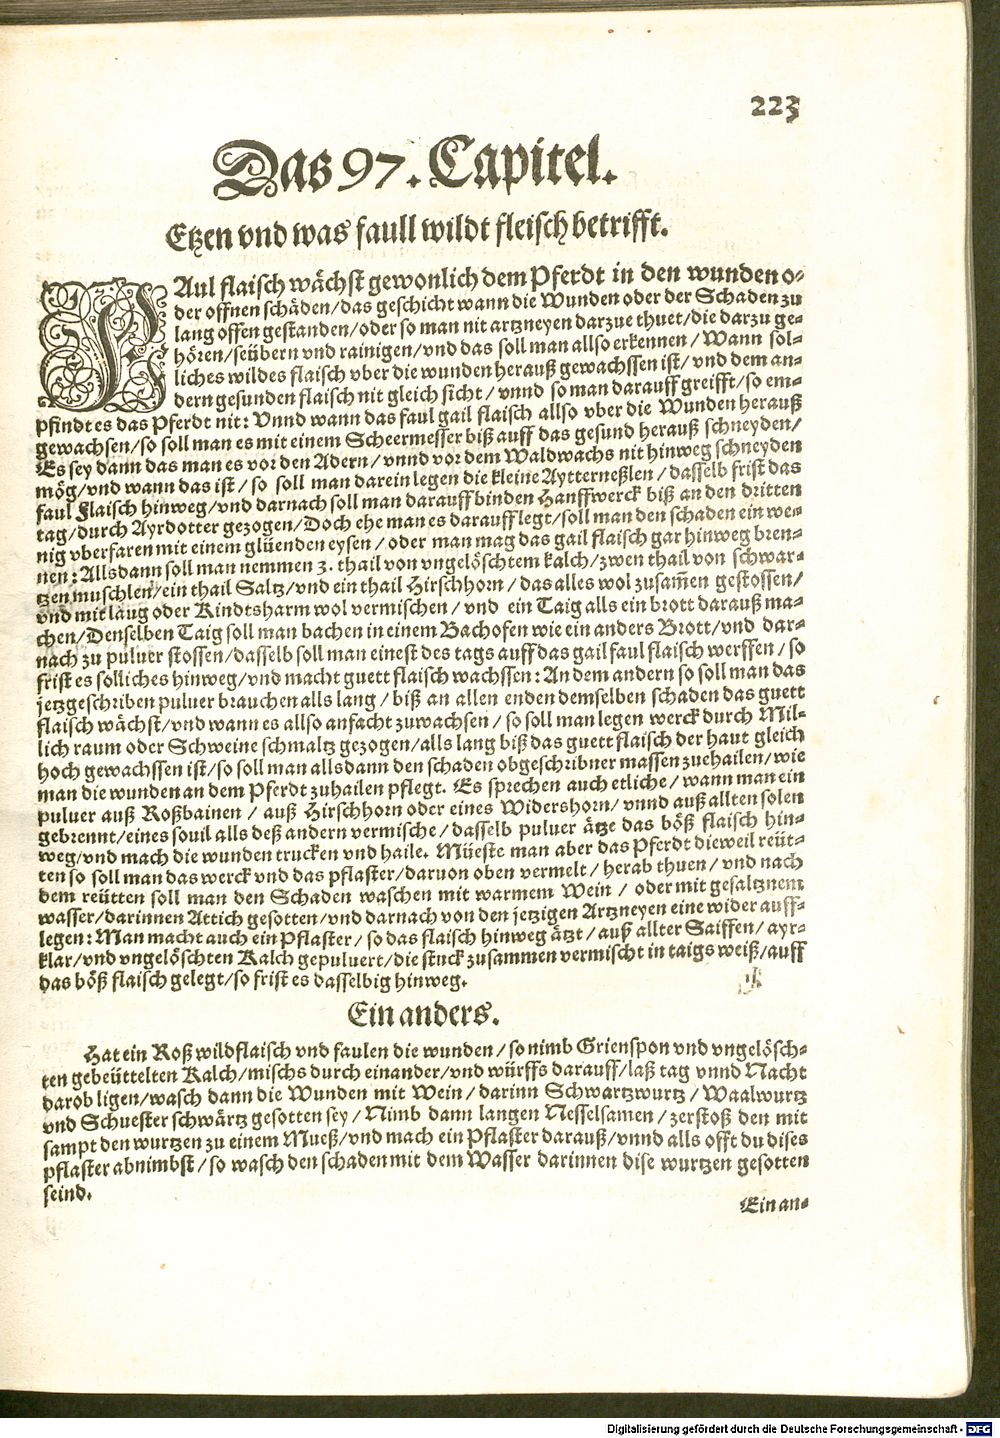 223
Das 97. Capitel.
Etzen vnd was faull wildt fleisch betrifft.
FAul flaisch wächst gewonlich dem Pferdt in den wunden o-
der offnen schäden/das geschicht wann die Wunden oder der Schaden zu
lang offen gestanden/oder so man nit artzneyen darzue thuet/die darzu ge-
hören/seübern vnd rainigen/vnd das soll man allso erkennen/Wann sol-
liches wildes flaisch vber die wunden herauß gewachssen ist/vnd dem an-
dern gesunden flaisch nit gleich sicht/vnnd so man darauff greifft/so em-
pfindt es das Pferdt nit: Vnnd wann das faul gail flaisch allso vber die Wunden herauß
gewachsen/so soll man es mit einem Scheermesser biß auff das gesund herauß schneyden/
Es sey dann das man es vor den Adern/vnnd vor dem Waldwachs nit hinweg schneyden
mög/vnd wann das ist/so soll man darein legen die kleine Aytterneßlen/dasselb frist das
faul Flaisch hinweg/vnd darnach soll man darauff binden Hanffwerck biß an den dritten
tag/durch Ayrdotter gezogen/Doch ehe man es darauff legt/soll man den schaden ein we-
nig vberfaren mit einem glüenden eysen/oder man mag das gail flaisch gar hinweg bren-
nen: Allsdann soll man nemmen 3. thail von vngelöschtem kalch/zwen thail von schwar-
tzen muschlen/ein thail Saltz/vnd ein thail Hirschhorn/das alles wol zusam̃en gestossen/
vnd mit laug oder Kindtsharm wol vermischen/vnd ein Taig alls ein brott darauß ma-
chen/Denselben Taig soll man bachen in einem Bachofen wie ein anders Brott/vnd dar-
nach zu puluer stossen/dasselb soll man einest des tags auff das gail faul flaisch werffen/so
frist es solliches hinweg/vnd macht guett flaisch wachssen: An dem andern so soll man das
jetzgeschriben puluer brauchen alls lang/biß an allen enden demselben schaden das guett
flaisch wächst/vnd wann es allso anfacht zuwachsen/so soll man legen werck durch Mil-
lich raum oder Schweine schmaltz gezogen/alls lang biß das guett flaisch der haut gleich
hoch gewachssen ist/so soll man allsdann den schaden obgeschribner massen zuehailen/wie
man die wunden an dem Pferdt zuhailen pflegt. Es sprechen auch etliche/wann man ein
puluer auß Roßbainen/auß Hirschhorn oder eines Widershorn/vnnd auß allten solen
gebrennt/eines souil alls deß andern vermische/dasselb puluer ätze das böß flaisch hin-
weg/vnd mach die wunden trucken vnd haile. Müeste man aber das Pferdt dieweil reüt-
ten so soll man das werck vnd das pflaster/daruon oben vermelt/herab thuen/vnd nach
dem reütten soll man den Schaden waschen mit warmem Wein/oder mit gesaltznem
wasser/darinnen Attich gesotten/vnd darnach von den jetzigen Artzneyen eine wider auff-
legen: Man macht auch ein Pflaster/so das flaisch hinweg ätzt/auß allter Saiffen/ayr-
klar/vnd vngelöschten Kalch gepuluert/die stuck zusammen vermischt in taigs weiß/auff
das böß flaisch gelegt/so frist es dasselbig hinweg.
Ein anders.
Hat ein Roß wildflaisch vnd faulen die wunden/so nimb Grienspon vnd vngelösch-
ten gebeüttelten Kalch/mischs durch einander/vnd würffs darauff/laß tag vnnd Nacht
darob ligen/wasch dann die Wunden mit Wein/darinn Schwartzwurtz/Waalwurtz
vnd Schuester schwärtz gesotten sey/Nimb dann langen Nesselsamen/zerstoß den mit
sampt den wurtzen zu einem Mueß/vnd mach ein Pflaster darauß/vnnd alls offt du dises
pflaster abnimbst/so wasch den schaden mit dem Wasser darinnen dise wurtzen gesotten
seind.
Ein an-
Digitalisierung gefördert durch die Deutsche Forschungsgemeinschaft - DFG